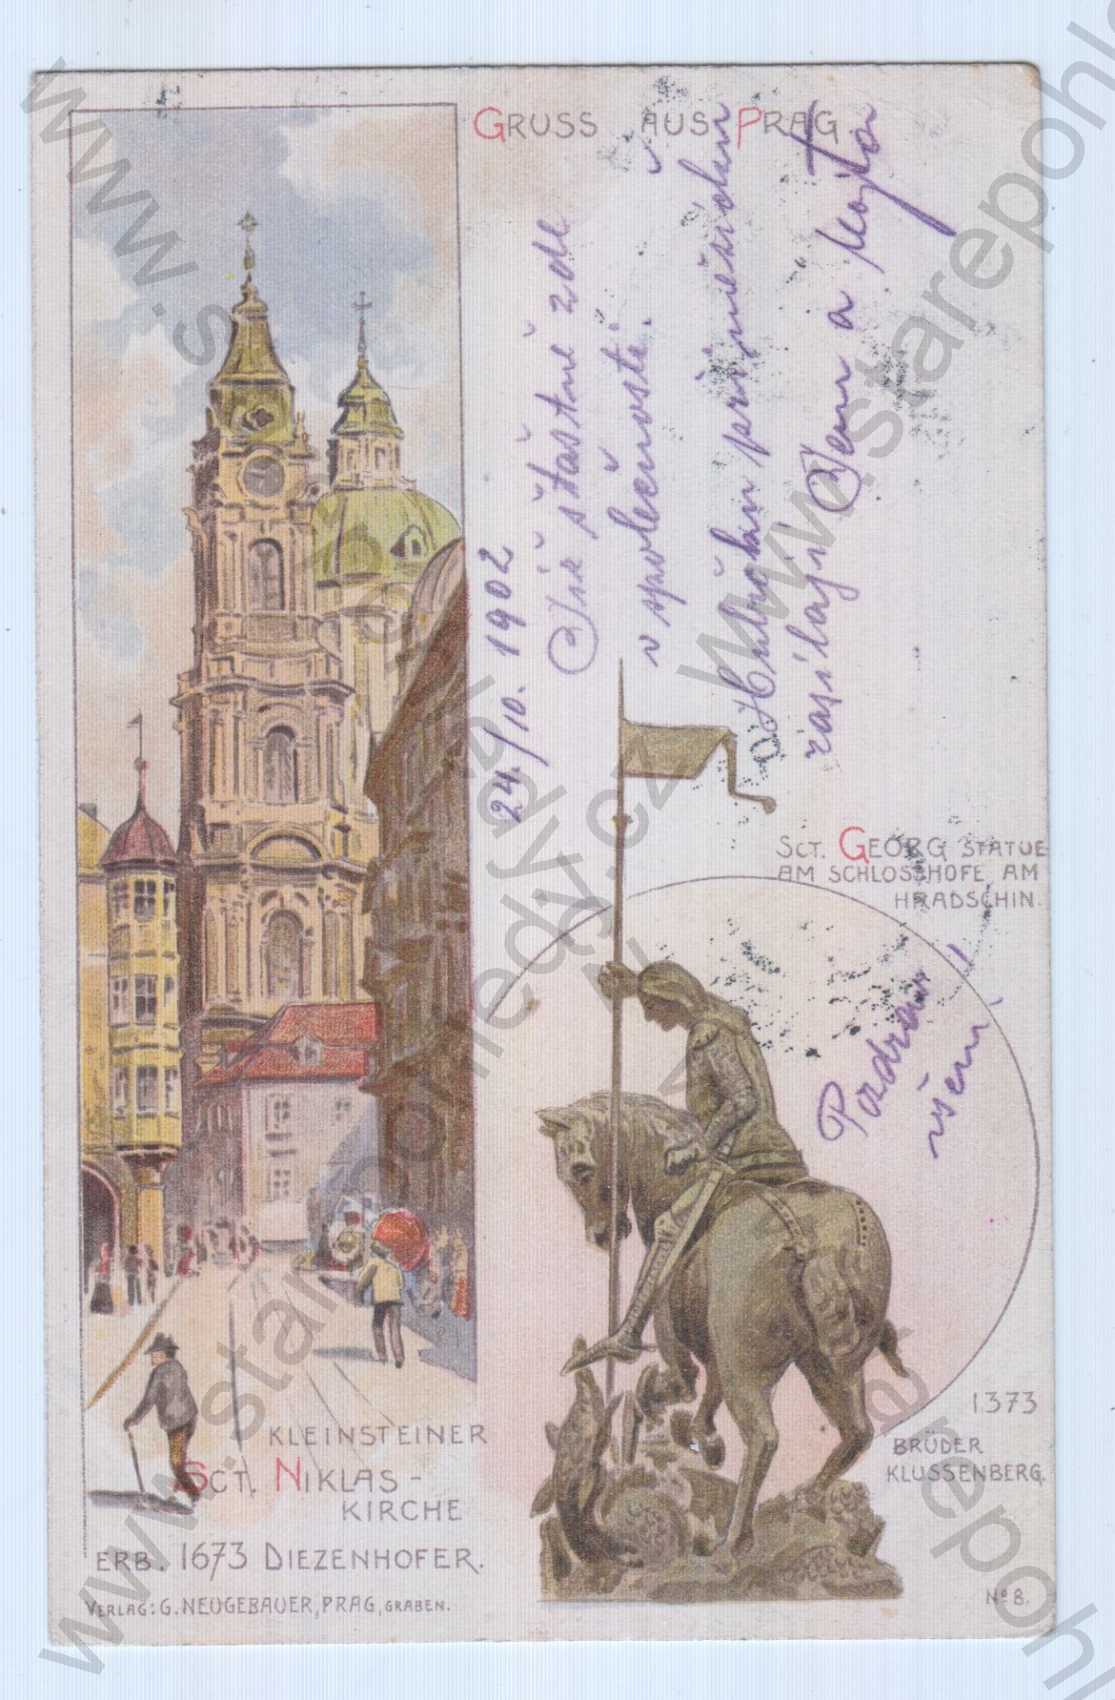 GRUSS AUS PRAG
24./10. 1902
Jsme šťastně zde
v společnosti.
zasílají a
Pozdrav
všem!
SCT. GEORG STATUE
AM SCHLOSSHOFE AM
HRADSCHIN.
1373
BRÜDER
KLUSSENBERG.
KLEINSTEINER
SCT. NIKLAS-
KIRCHE
ERB. 1673 DIEZENHOFER.
VERLAG: G. NEUGEBAUER, PRAG, GRABEN.
Nº 8.
www.starepohledy.cz